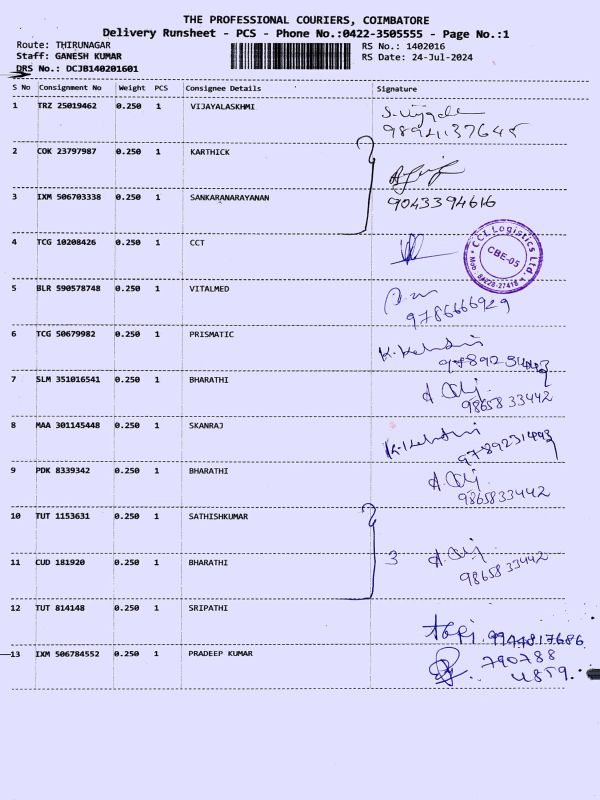 THE PROFESSIONAL COURIERS, COIMBATORE
Delivery Runsheet - PCS - Phone No.:0422-3505555 - Page No.:1
Route: THIRUNAGAR RS No.: 1402016
Staff: GANESH KUMAR RS Date: 24-Jul-2024
DRS No.: DCJB140201601
S No Consignment No Weight PCS Consignee Details Signature
1 TRZ 25019462 0.250 1 VIJAYALASKHMI
2 COK 23797987 0.250 1 KARTHICK
3 IXM 506703338 0.250 1 SANKARANARAYANAN 9043394616
4 TCG 10208426 0.250 1 CCT
CCI Logistics Ltd.
CBE-05
5 BLR 590578748 0.250 1 VITALMED
9786666929
6 TCG 50679982 0.250 1 PRISMATIC
7 SLM 351016541 0.250 1 BHARATHI
9865833442
8 MAA 301145448 0.250 1 SKANRAJ
9789231443
9 PDK 8339342 0.250 1 BHARATHI
9865833442
10 TUT 1153631 0.250 1 SATHISHKUMAR
11 CUD 181920 0.250 1 BHARATHI 3
9865833442
12 TUT 814148 0.250 1 SRIPATHI
9944817686
13 IXM 506784552 0.250 1 PRADEEP KUMAR 790788
4859.